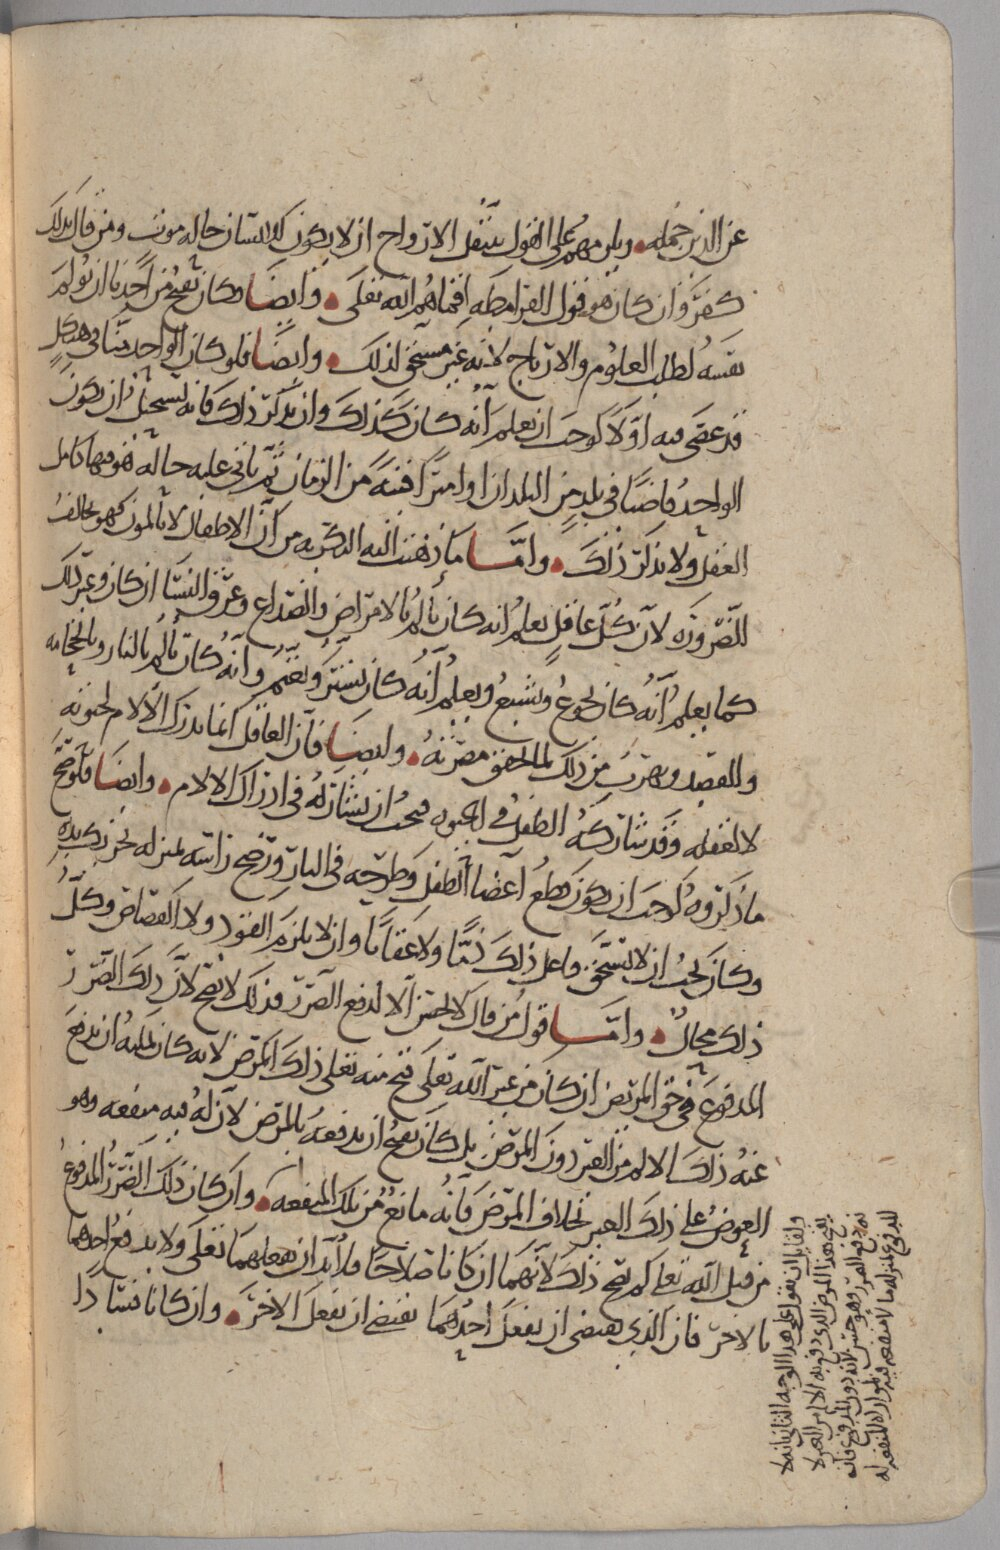 عن الدين جمله • ويلزمهم على القول بتنقل الارواح ان لا يكون للانسان حاله موت ومن قال بذلك
كفر وان كان هو قول القرامطه اقماهم الله تعلى • وايضا وكان يقبح من احدنا ان يولم
نفسه لطلب العلوم والارباح لانه غير مستحق لذلك • وايضا فلو كان الواحد منا في هيكل
قد عصى فيه اولا لوجب ان يعلم انه كان كذلك وان يذكر ذلك فانه يستحيل ان يكون
الواحد قاضيا في بلد من البلدان او اميرا فينة من الزمان ثم ياتي عليه حاله هو فيها كامل
العقل ولا يذكر ذلك • واما ما ذهبت اليه البكريه من ان الاطفال لا يالمون فهو مخالف
للضروره لان كل عاقل يعلم انه كان يالم بالامراض والصداع وعرق النسا ان كان وغير ذلك
كما يعلم انه كان يجوع ويشبع ويعلم انه كان يستر ويغتم وانه كان يالم بالنار وبالحجامه
والفصد ويهرب من ذلك لما لحقق مضرته • وايضا فان العاقل انما يدرك الالام لحيوته
لا لعقله وقد شاركه الطفل في الحيوه فيجب ان يشاركه في ادراك الالام • وايضا فلو صح
ما ذكروه لوجب ان يكون قطع اعضا الطفل وطرحه في النار ورضح راسه بمنزله تحريك يده
وكان يجب ان لا يستحق فاعل ذلك ذما ولا عقابا وان لا يلزم القود ولا القصاص وكل
ذلك محال • واما قول من قال لا يحسن الا لدفع الضرر فذلك لا يصح لان ذلك الضرر
المدفوع في حق المريض ان كان من غير الله تعلى قبح منه تعلى ذلك المرض لانه كان يمكنه ان يدفع
عنه ذلك الالم من الغير دون المرض بل كان يقبح ان يدفعه بالمرض لان له فيه منفعه وهو
العوض على ذلك الغير بخلاف المرض فانه مانع من تلك المنفعه • وان كان ذلك الضرر المدفوع
من قبل الله تعلى لم يصح ذلك لانهما ان كانا صلاحا فلا بد ان يفعلهما تعلى ولا يدفع احدهما
بالاخر فان الذي يقتضي ان يفعل احدهما يقتضي ان يفعل الاخر • وان كانا فسادا
ولقايل ان يقول على هذا الوجه الثاني انه لا
يقبح هذا المرض الذي دفع به الالم من الغير لا
نه دفع الضرر وهو حسن لانه دون المدفوع فانه